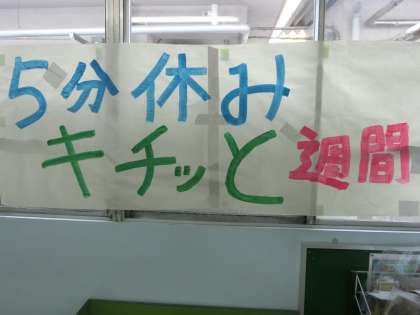 5分休み
キチッと週間